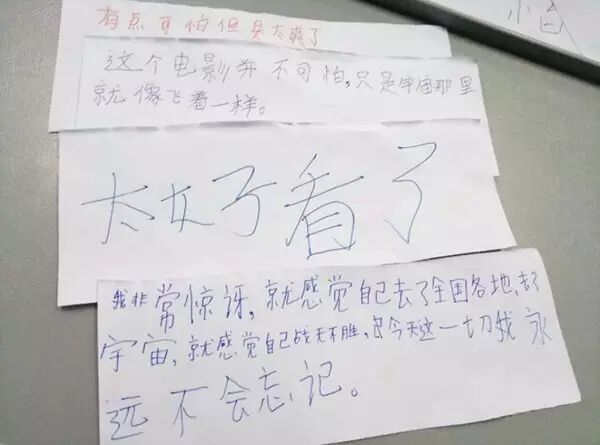 有点可怕但是太爽了
这个电影并不可怕，只是宇宙那里
就像飞着一样。
太好看了
我非常惊讶，就感觉自己去了全国各地，去了
宇宙，就感觉自己战无不胜，今天这一切我永
远不会忘记。